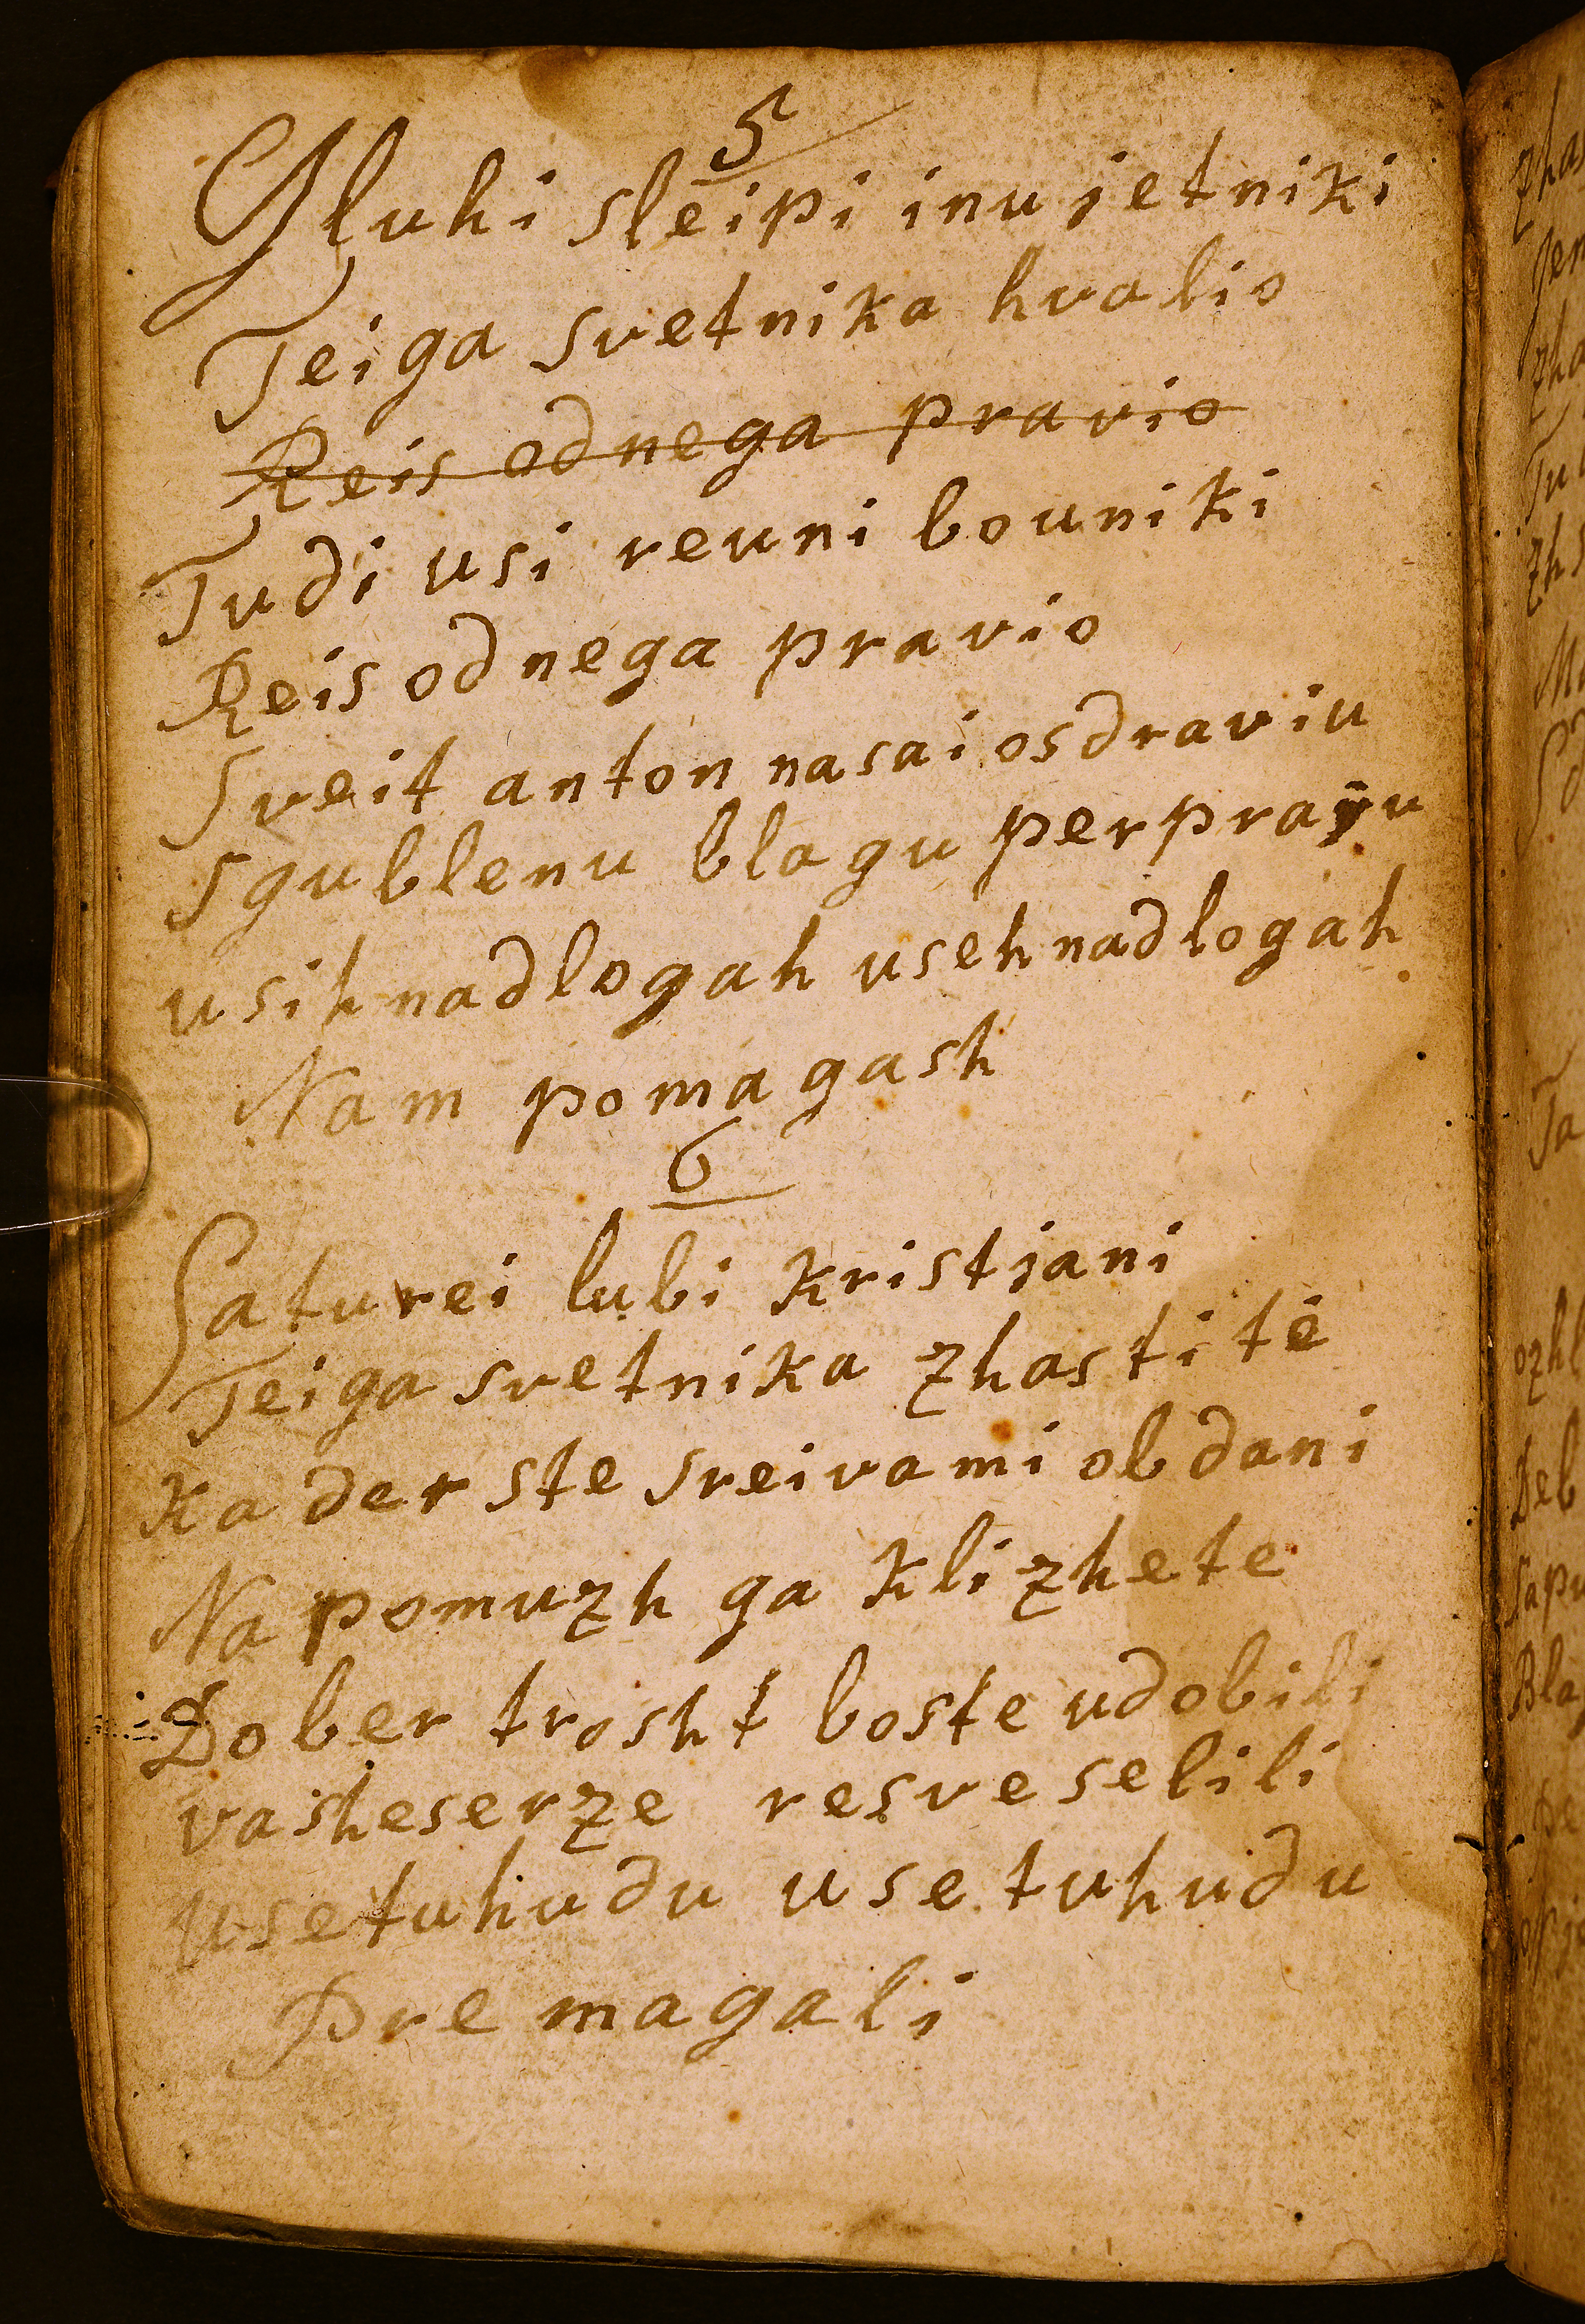 5
Gluhi sleipi inu jetniki
Teiga svetnika hvalio
Reis od nega pravio
Tudi usi reuni bouniki
Reis od nega pravio
Sveit anton nasai osdraviu
Sgublenu blagu perpravu
usih nadlogah useh nadlogah
Nam pomagash
6
Saturei lubi Kristjani
Teiga svetnika zhastite
Kader ste sreivami obdani
Na pomuzh ga Klizhete
Dober trosht boste udobili
vashe serze resveselili
use tu hudu use tu hudu
Pre magali